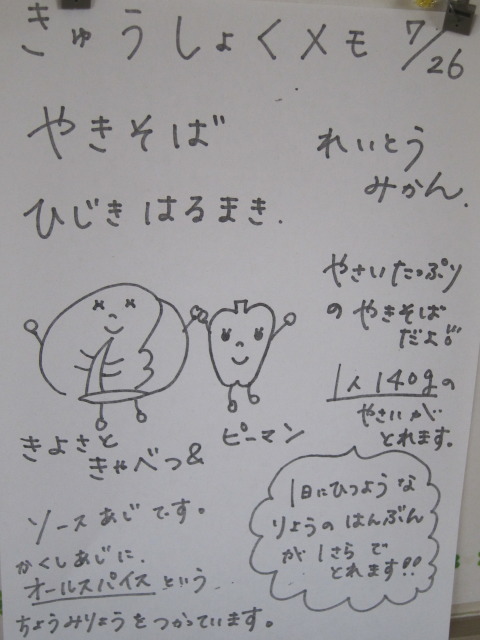 きゅうしょくメモ 7/26
やきそば
ひじきはるまき.
れいとう
みかん.
やさいたっぷり
のやきそば
だよ!!
1人140gの
やさいが
とれます。
きよさと
きゃべつ&
ピーマン
1日にひつような
りょうのはんぶん
が1さらで
とれます!!
ソースあじです。
かくしあじに、
オールスパイスという
ちょうみりょうをつかっています。